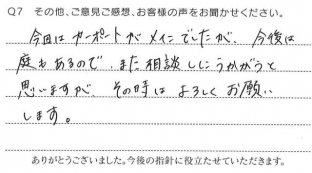 Q7 その他、ご意見ご感想、お客様の声をお聞かせください。
今回は カーポートが メインでしたが、今後は
庭もあるので、また相談しにうかがうと
思いますが、その時は よろしく お願い
します。
ありがとうございました。今後の指針に役立たせていただきます。